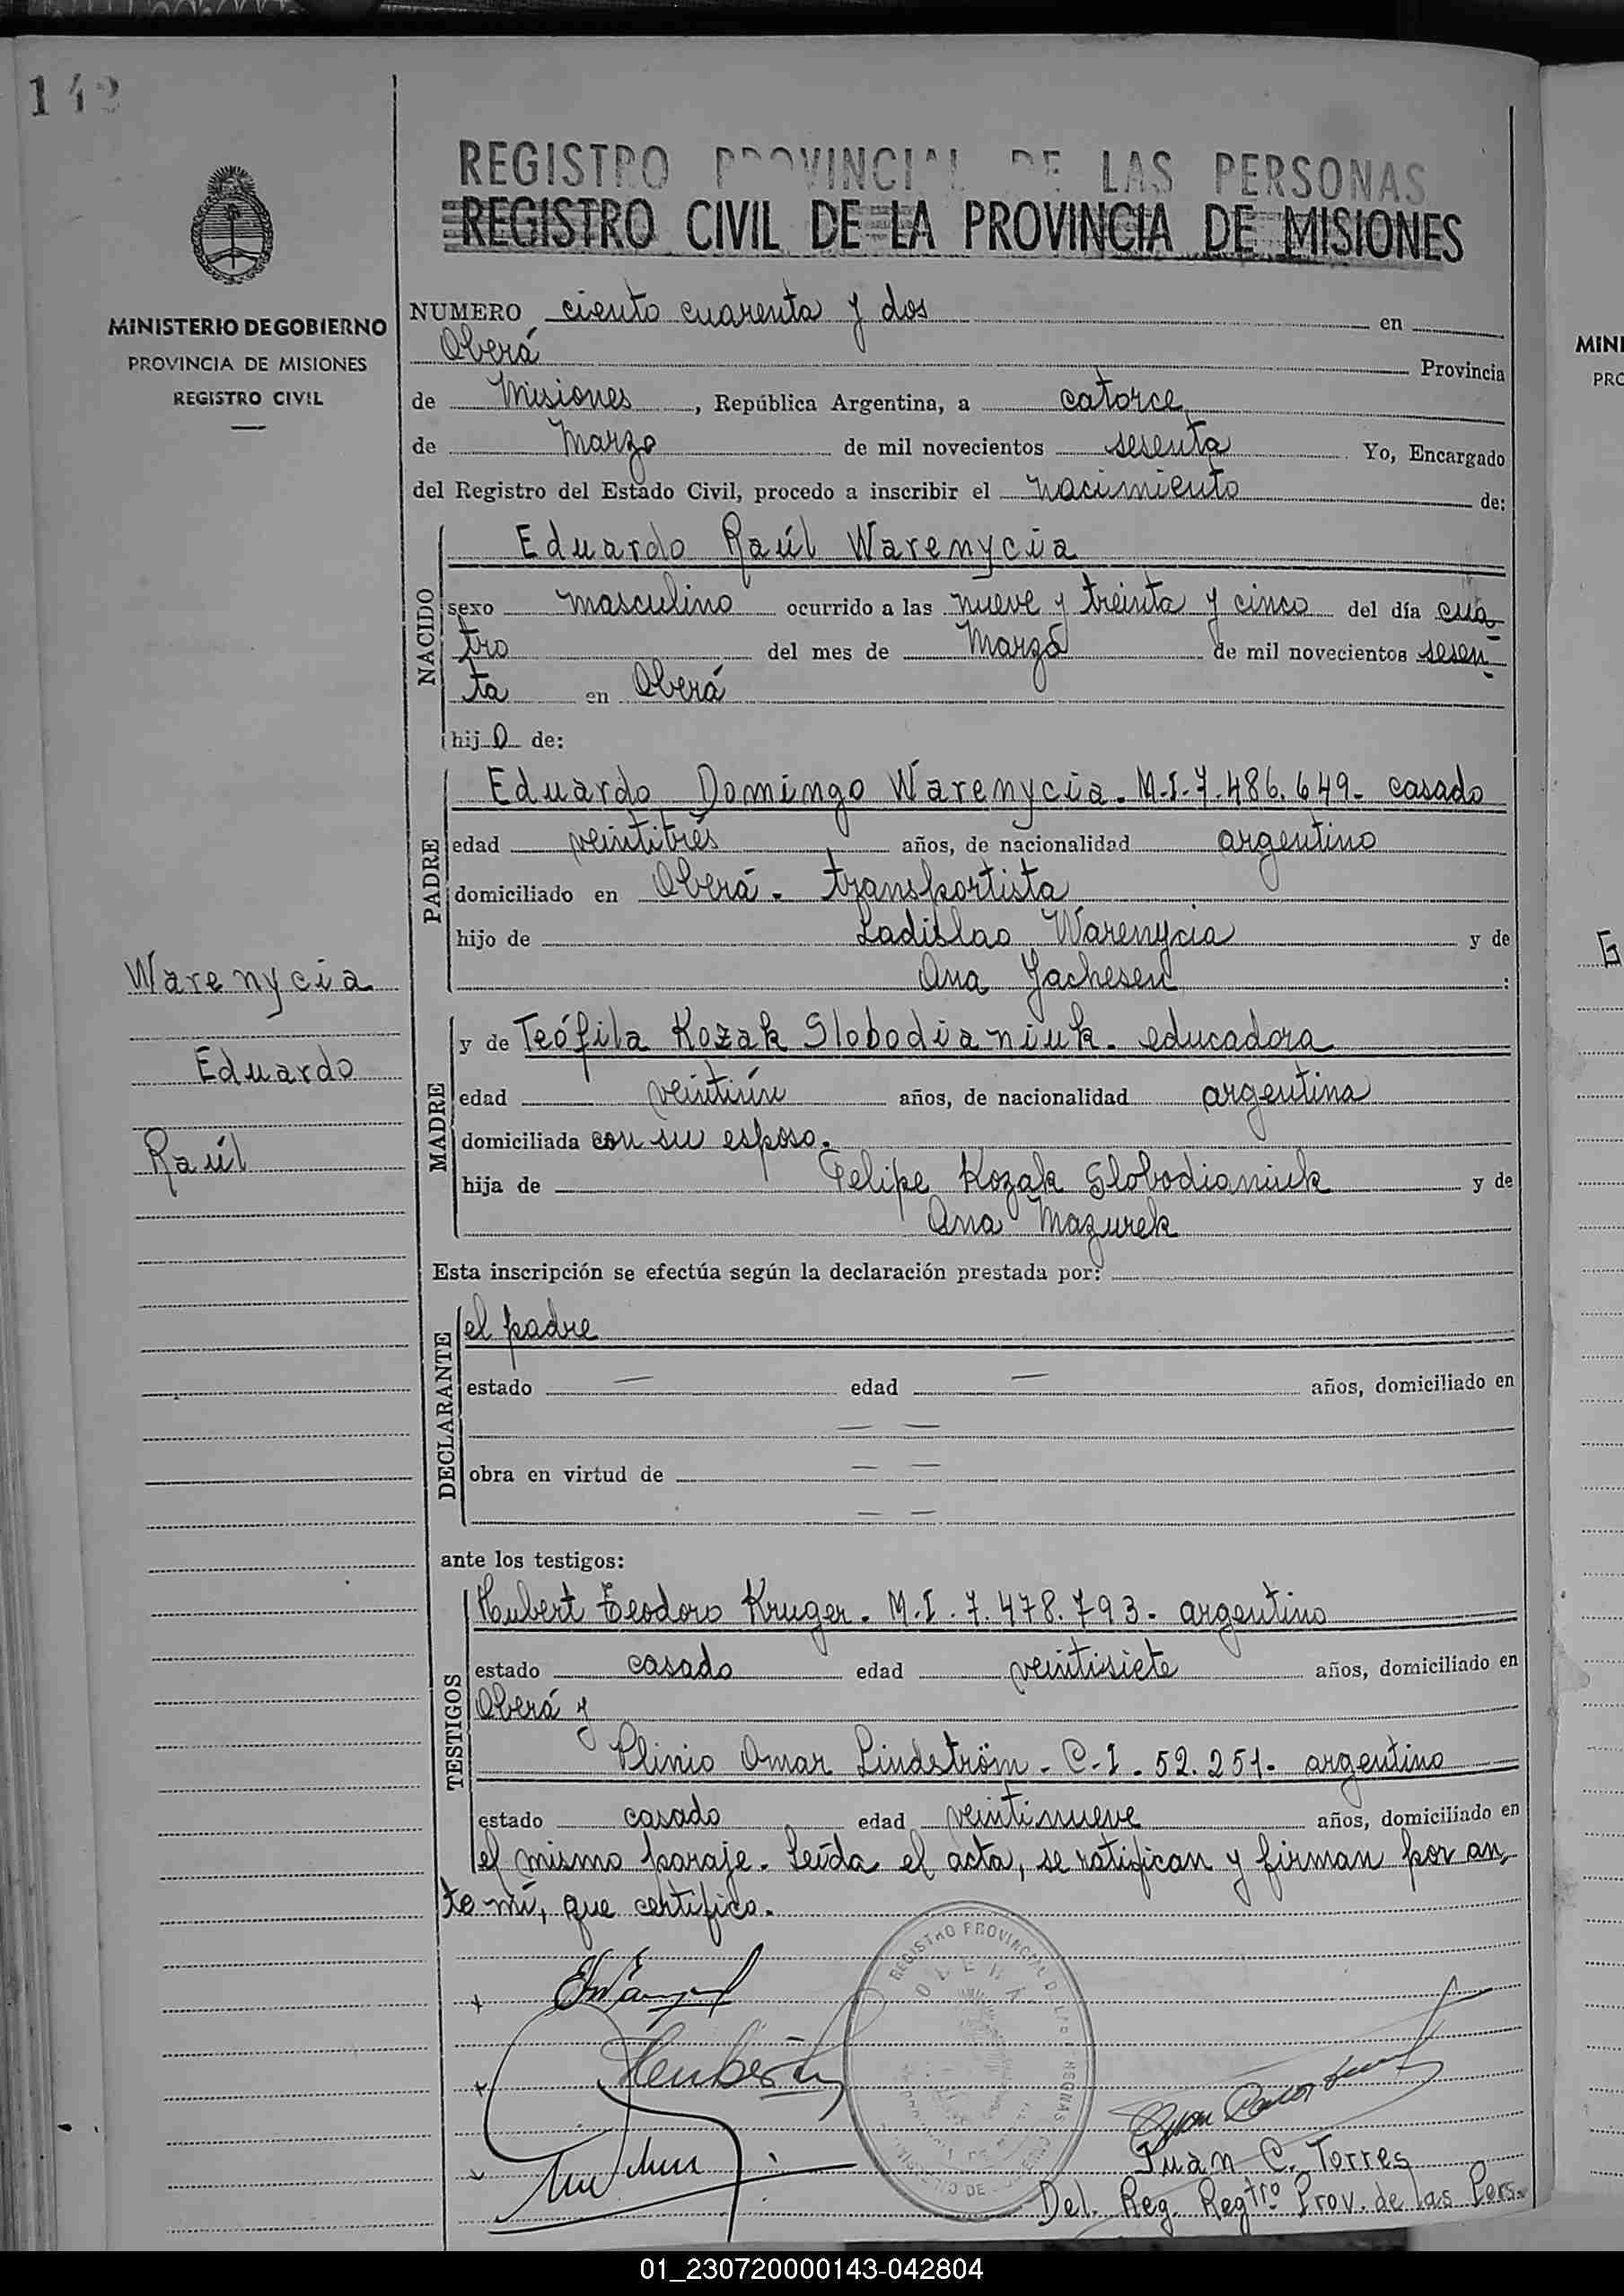 142
REGISTRO PROVINCIAL DE LAS PERSONAS
REGISTRO CIVIL DE LA PROVINCIA DE MISIONES
MINISTERIO DE GOBIERNO
PROVINCIA DE MISIONES
REGISTRO CIVIL
NUMERO ciento cuarenta y dos en
Oberá Provincia
de Misiones, República Argentina, a catorce
de Marzo de mil novecientos sesenta Yo, Encargado
del Registro del Estado Civil, procedo a inscribir el nacimiento de:
NACIDO
Eduardo Raúl Warenycia
sexo masculino ocurrido a las nueve y treinta y cinco del día cua-
tro del mes de Marzo de mil novecientos sesen-
ta en Oberá
hijo de:
PADRE
Eduardo Domingo Warenycia. M.I. 7.486.649- casado
edad veintitrés años, de nacionalidad argentino
domiciliado en Oberá - transportista
hijo de Ladislao Warenycia y de
Ana Jachesen
Warenycia
Eduardo
Raúl
MADRE
y de Teófila Kozak Slobodianiuk. educadora
edad veintiún años, de nacionalidad argentina
domiciliada con su esposo.
hija de Felipe Kozak Slobodianiuk y de
Ana Mazurek
Esta inscripción se efectúa según la declaración prestada por:
DECLARANTE
el padre
estado — edad — años, domiciliado en
— —
obra en virtud de — —
— —
ante los testigos:
TESTIGOS
Hubert Teodoro Kruger. M.I. 7.478.793- argentino
estado casado edad veintisiete años, domiciliado en
Oberá y
Plinio Omar Lindström - C.I. 52.251- argentino
estado casado edad veintinueve años, domiciliado en
el mismo paraje. Leída el acta, se ratifican y firman por an-
te mí, que certifico.
REGISTRO PROVINCIAL DE LAS PERSONAS
OBERA
Juan C. Torres
Del. Reg. Regtro Prov. de las Pers.
MINI
PRO
G
01_230720000143-042804